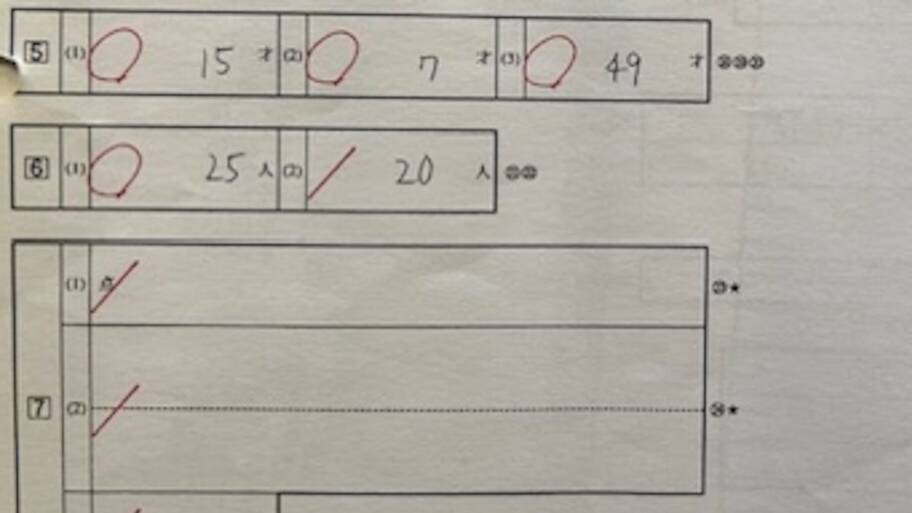 5 (1) 15 才 (2) 7 才 (3) 49 才
6 (1) 25 人 (2) 20 人
(1) 点
7 (2)